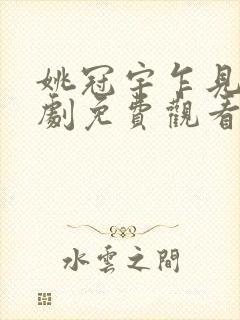 姚冠宇乍見
劇免費觀看
水雲之間